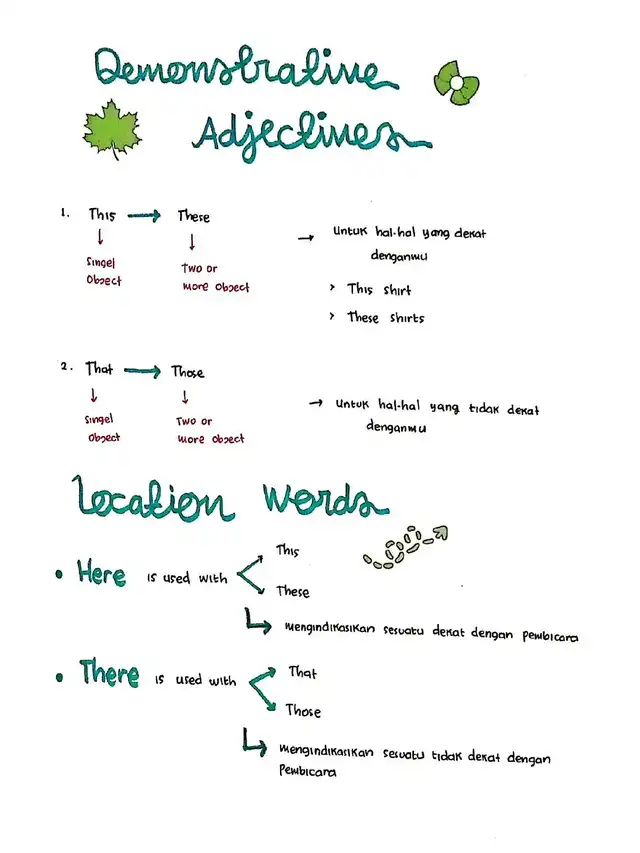 Demonstrative
Adjectives
1. This → These
↓ ↓
Singel Object
Two or more Object
→ Untuk hal-hal yang dekat
denganmu
> This shirt
> These shirts
2. That → Those
↓ ↓
Singel Object
Two or more Object
→ Untuk hal-hal yang tidak dekat
denganmu
Location Words
• Here is used with
This
These
mengindikasikan sesuatu dekat dengan pembicara
• There is used with
That
Those
mengindikasikan sesuatu tidak dekat dengan
pembicara